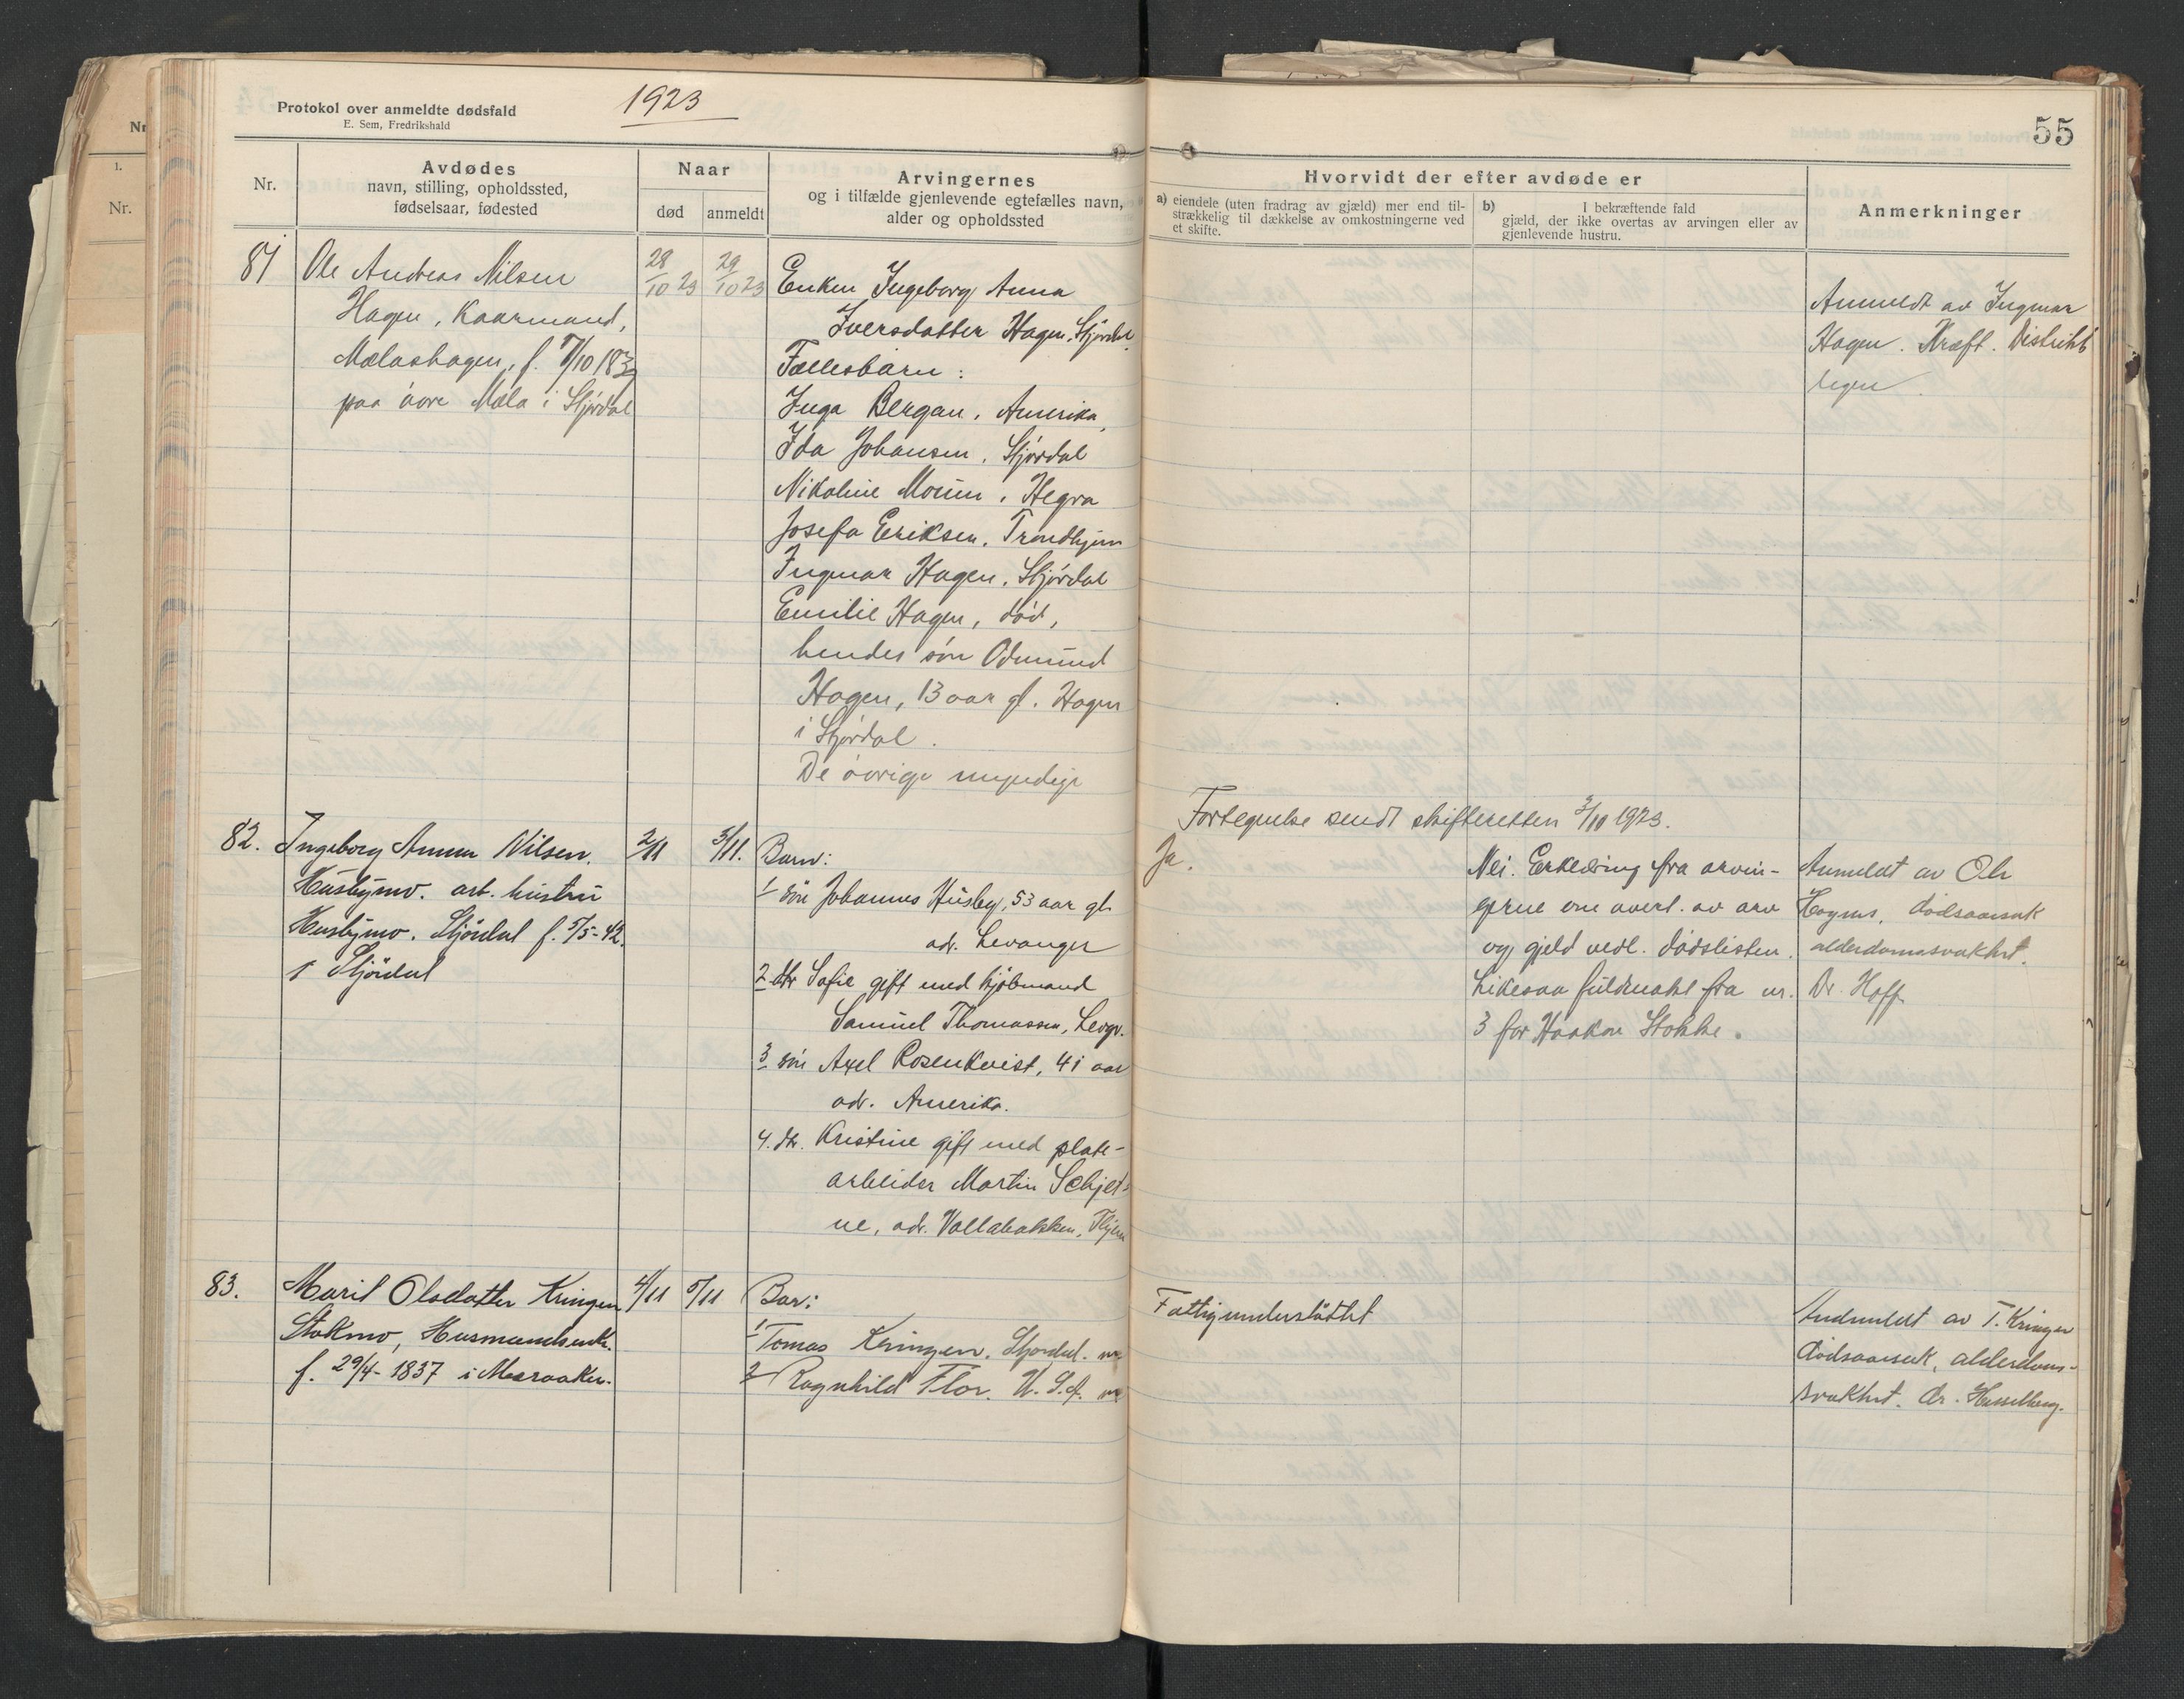 Protokol over anmeldte dødsfald
E. Sem, Fredrikshald
1923
55
Nr.
Avdødes
navn, stilling, opholdssted,
fødselsaar, fødested
Naar
død
anmeldt
Arvingernes
og i tilfælde gjenlevende egtefælles navn,
alder og opholdssted
Hvorvidt der efter avdøde er
a) eiendele (uten fradrag av gjæld) mer end til-
strækkelig til dækkelse av omkostningerne ved
et skifte.
b) I bekræftende fald
gjæld, der ikke overtas av arvingen eller av
gjenlevende hustru.
Anmerkninger
Nr
1.
Nr.
81
Ole Andreas Nilsen
Hagen, Kaarmand,
Mælashagen, f. 7/10 183
paa övre Mæla i Stjørdal
28/10 23
29/10 23
Enken Ingeborg Anna
Iversdatter Hagen, Stjørdal
Fællesbarn:
Inga Bergan, Amerika,
Ida Johansen, Stjørdal
Nikoline Moum, Hegra
Josefa Eriksen, Trondhjem
Ingmar Hagen, Stjørdal
Emilie Hagen, död,
hendes sön Odmund
Hagen, 13 aar gl. Hagen
i Stjørdal.
De övrige myndige
Anmeldt av Ingmar
Hagen. Kræft. Distrikts
legen
Fortegnelse sendt skifteretten 3/10 1923.
82.
Ingeborg Anna Nilsen
Husbymo. arb. hustru
Husbymo. Stjördal f. 5/5-42.
i Stjördal
2/11
3/11.
Barn:
1 sön Johannes Husby, 53 aar gl.
adr. Levanger
2 dtr Sofie gift med kjöbmand
Samuel Thomassen, Levgr.
3 sön Axel Rosenkvist, 41 aar
adr. Amerika.
4. dtr. Kristine gift med plate-
arbeider Martin Schjet-
ne, adr. Vollabakken, Thjem
Ja.
Nei. Erklæring fra arvin-
gerne om overt. av arv
og gjeld vedl. dödslisten.
Likesaa fuldmakt fra nr.
3 for Haakon Stokke.
Anmeldt av Ole
Hagens, dödsaarsak
alderdomssvakhet.
Dr. Hoff
83.
Marit Olsdatter Kringen
Stokmo, Husmandsenke.
f. 29/4-1837 i Meraaker.
4/11
5/11
Bar:
1 Tomas Kringen. Stjørdal.
2 Ragnhild Flor. U.S.A.
Fattigunderstöttet
Andmeldt av T. Kringen
dödsaarsak, alderdoms-
svakhet. dr. Hasselberg.